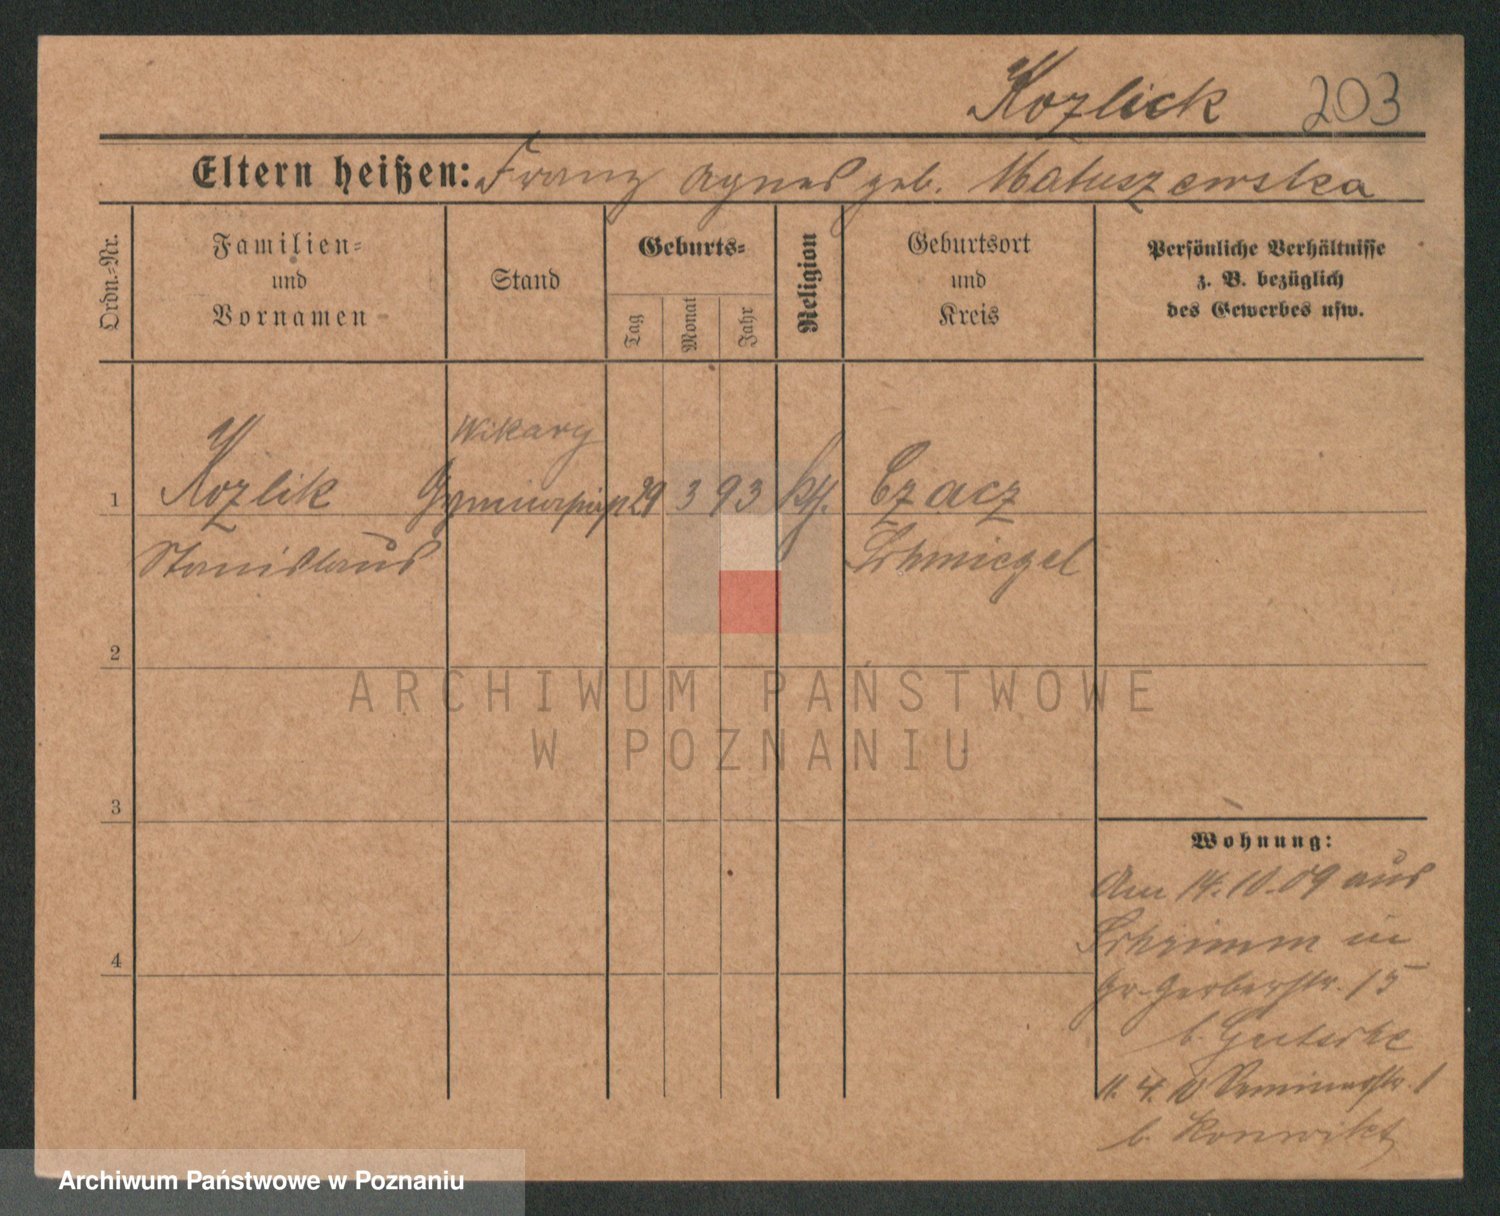 Kozlick 203
Eltern heißen: Franz Agnes geb. Matuszewska
Ordn.=Nr.
Familien=
und
Vornamen
Stand
Geburts=
Tag
Monat
Jahr
Religion
Geburtsort
und
Kreis
Persönliche Verhältnisse
z. B. bezüglich
des Gewerbes usw.
Wikary
1 Kozlik 29 3 93 kth. Czacz
Stanislaus Schmiegel
2
ARCHIWUM PAŃSTWOWE
W POZNANIU
3
Wohnung:
Am 14.10.09 aus
Schrimm in
4
Gr. Gerberstr. 15
b.
11. 4. 10 Seminarstr. 1
b. Konwikt
Archiwum Państwowe w Poznaniu